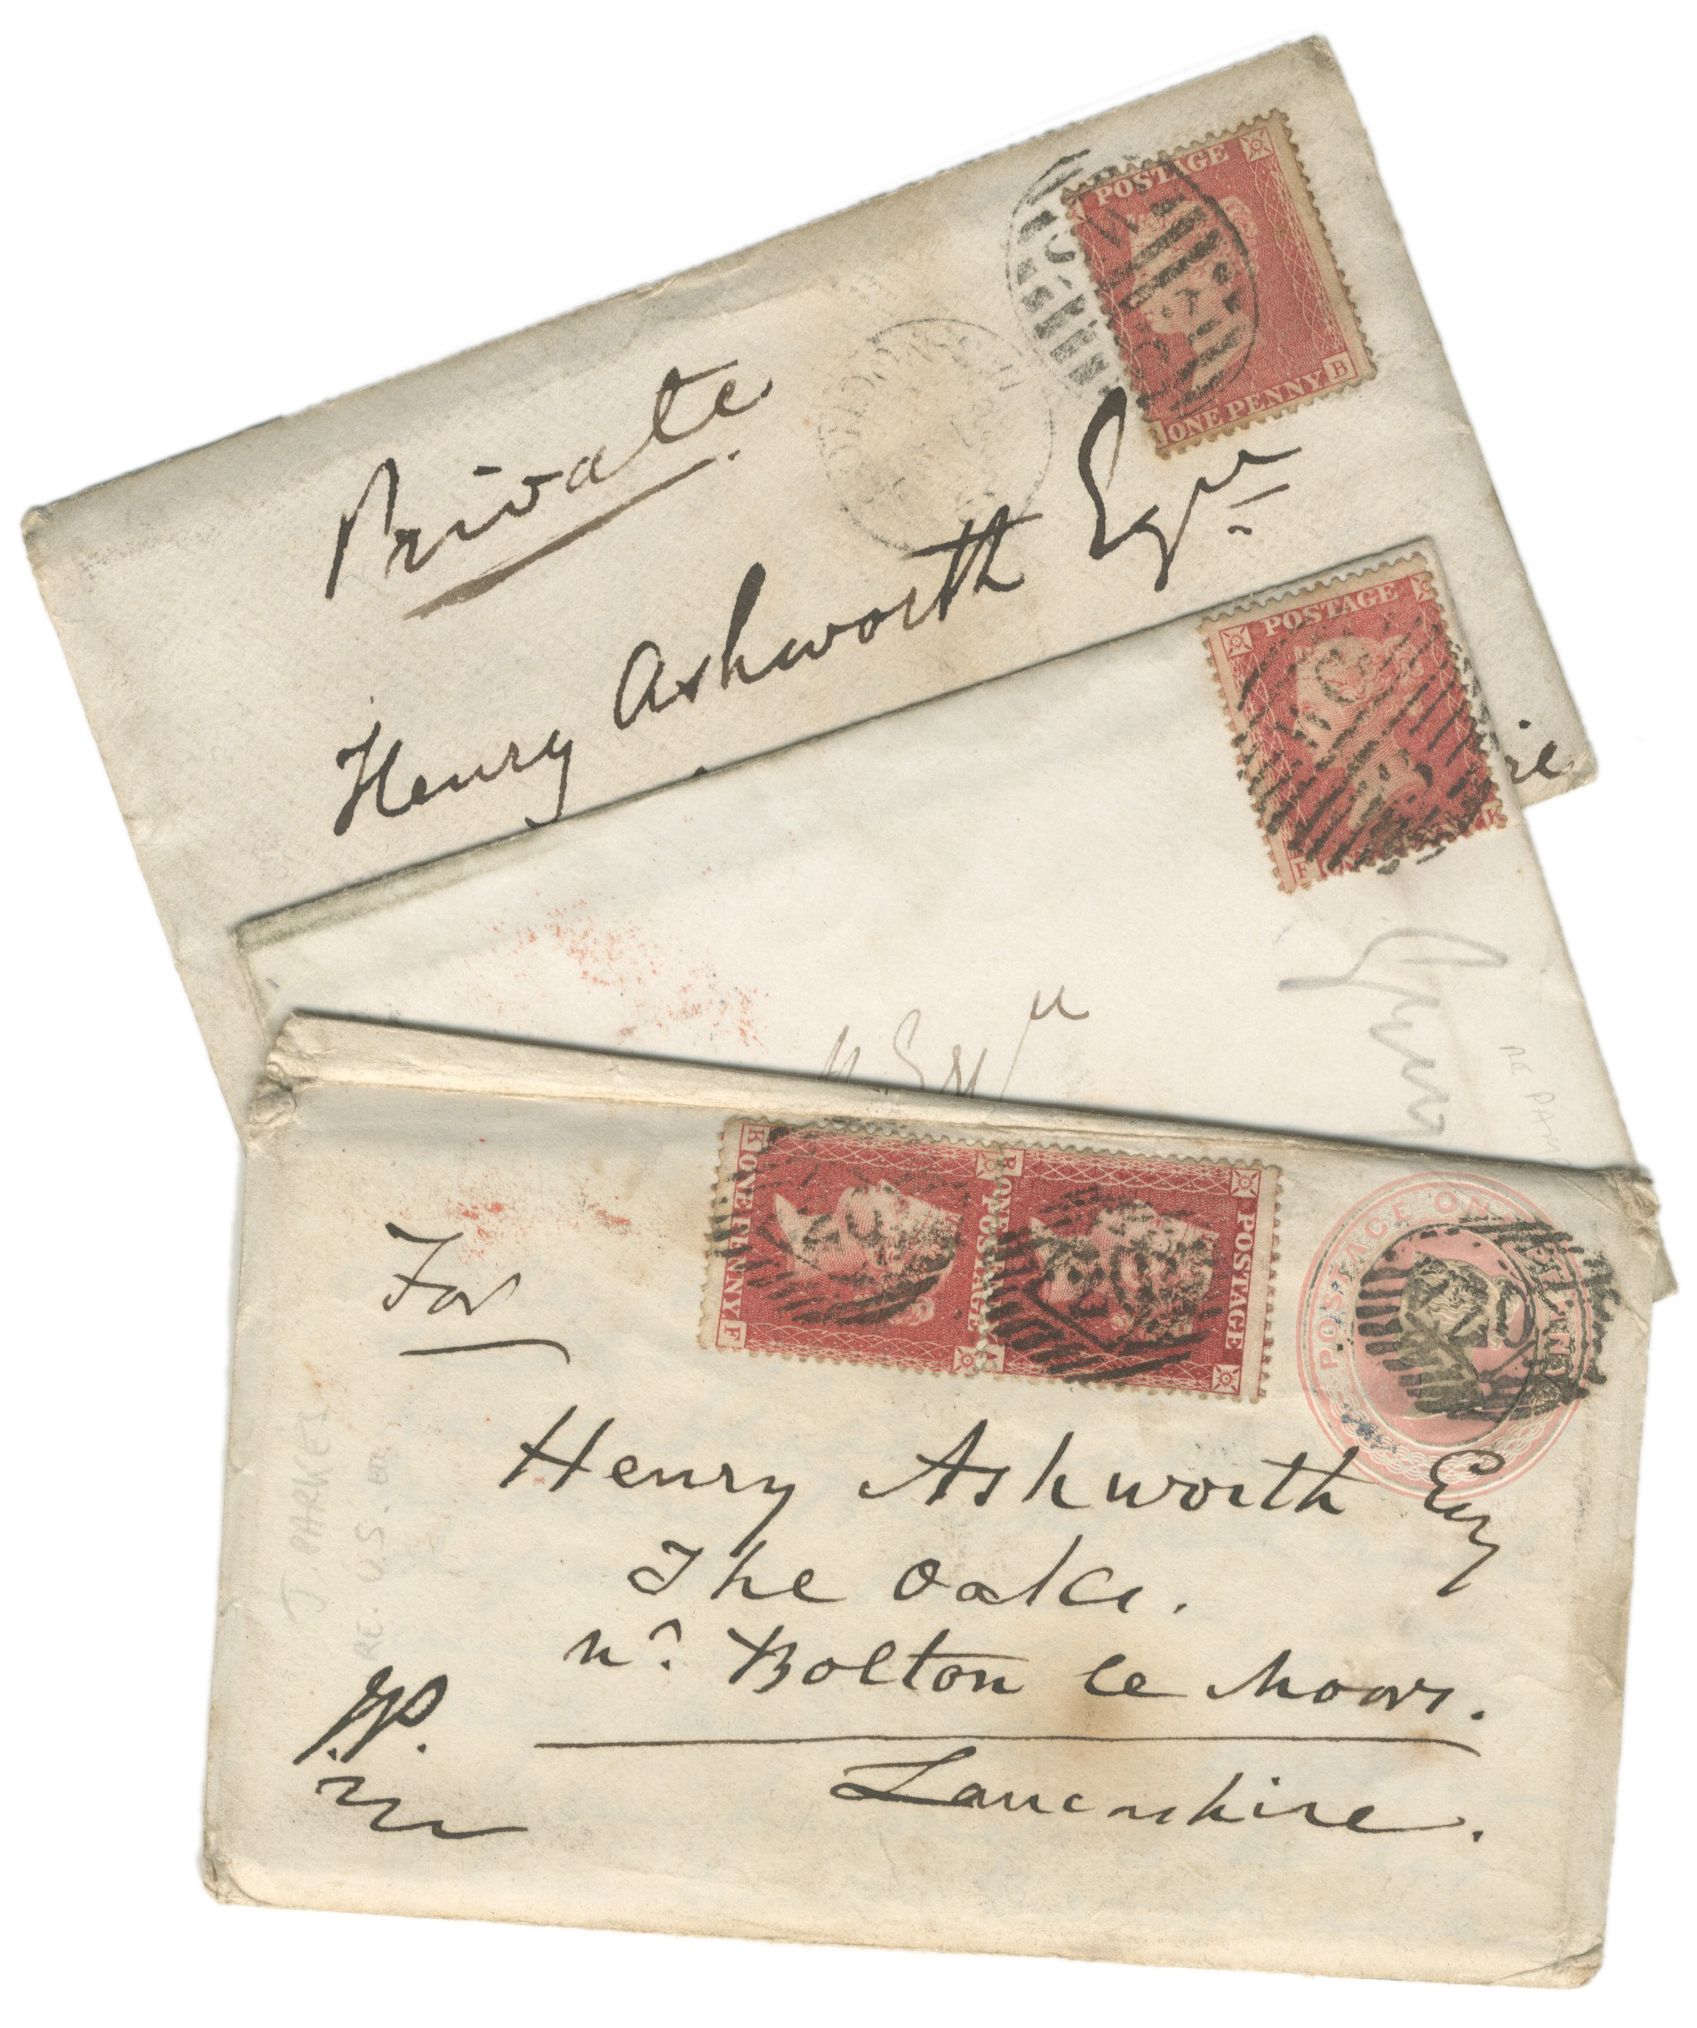 POSTAGE
ONE PENNY
B
Private
Henry Ashworth Esqre
ire
POSTAGE
F
K
Esqre
RE PAM
K ONE PENNY F
POSTAGE
POSTAGE
POSTAGE ONE PENNY
For
Henry Ashworth Esq
The Oaks.
nr. Bolton le Moors.
Lancashire.
J.P.
J. PARKES
RE. U.S.